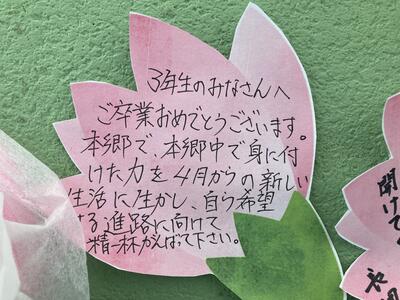 3年生のみなさんへ
ご卒業おめでとうございます。
本郷で、本郷中で身に付
けた力を4月からの新しい
生活に生かし、自ら希望
る進路に向けて
精一杯がんばって下さい。
開けて